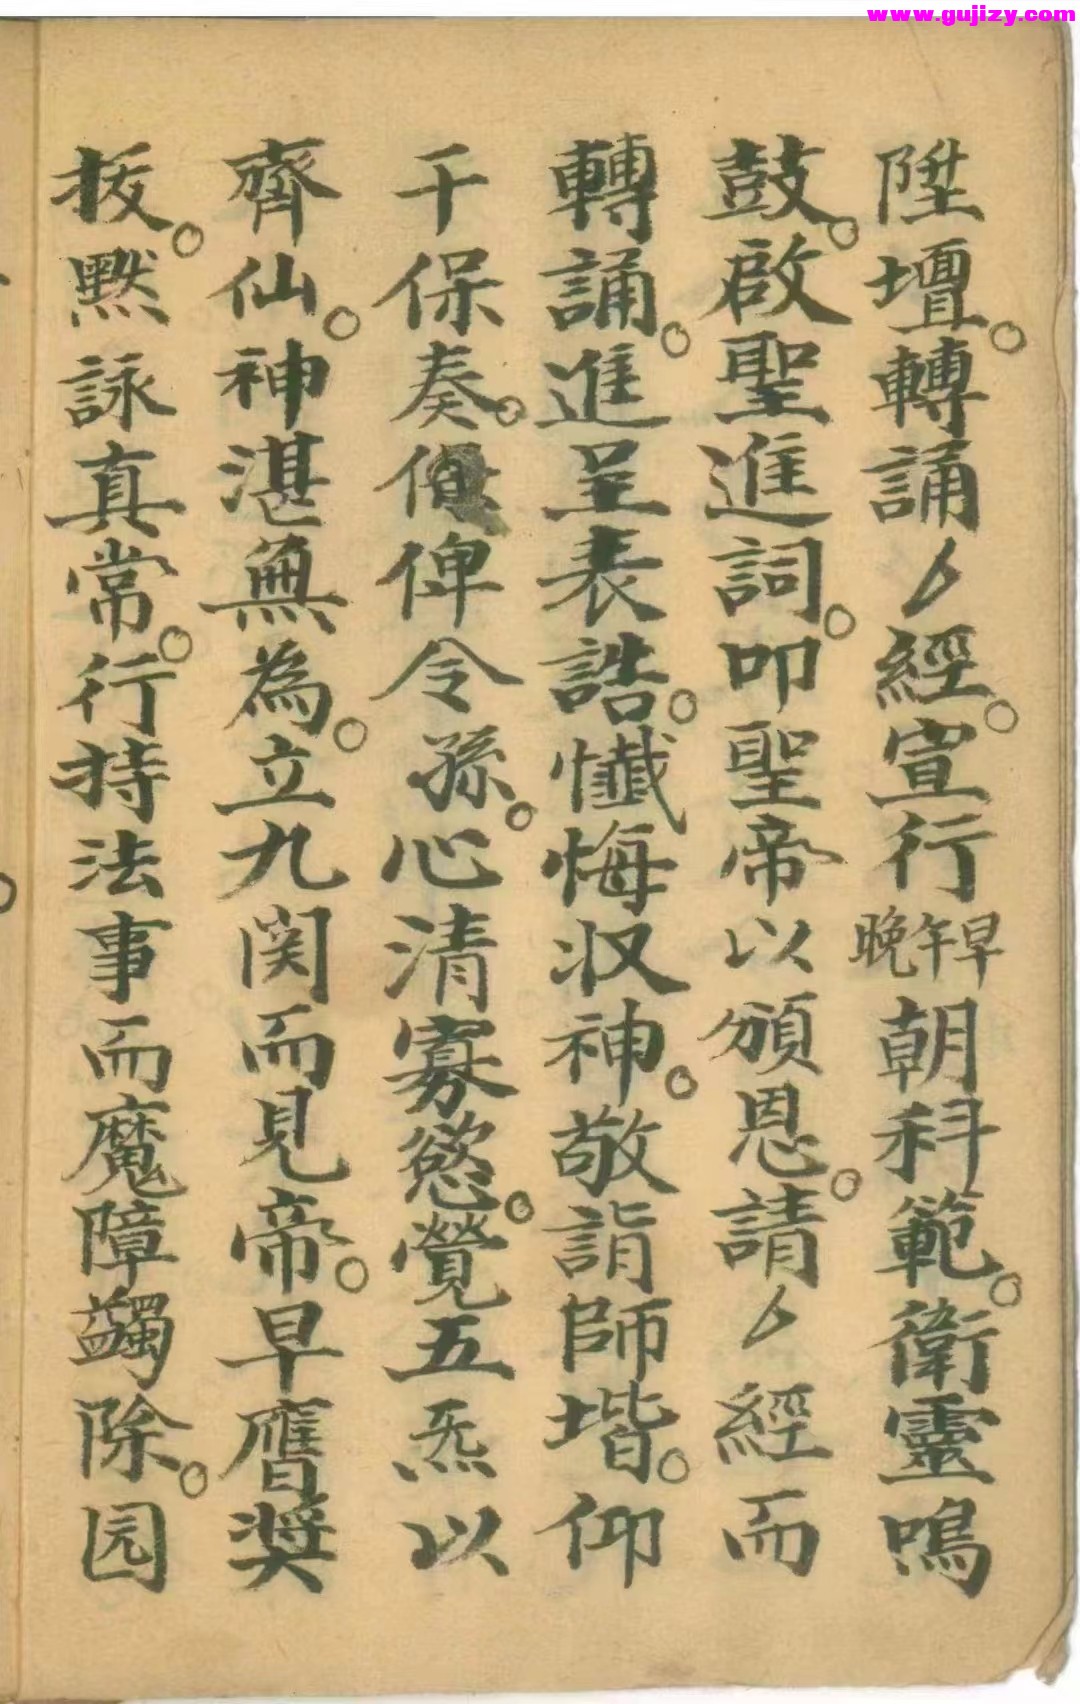 www.gujizy.com
陞壇。轉誦〻經。宣行早午晚朝科範。衛靈鳴
鼓。啟聖進詞。叩聖帝以頒恩。請〻經而
轉誦。進呈表誥。懺悔収神。敬詣師堦。仰
干保奏。俾令孫。心清寡慾。覺五炁以
齊仙。神湛無為。立九関而見帝。早膺奨
拔。黙詠真常。行持法事而魔障蠲除。园